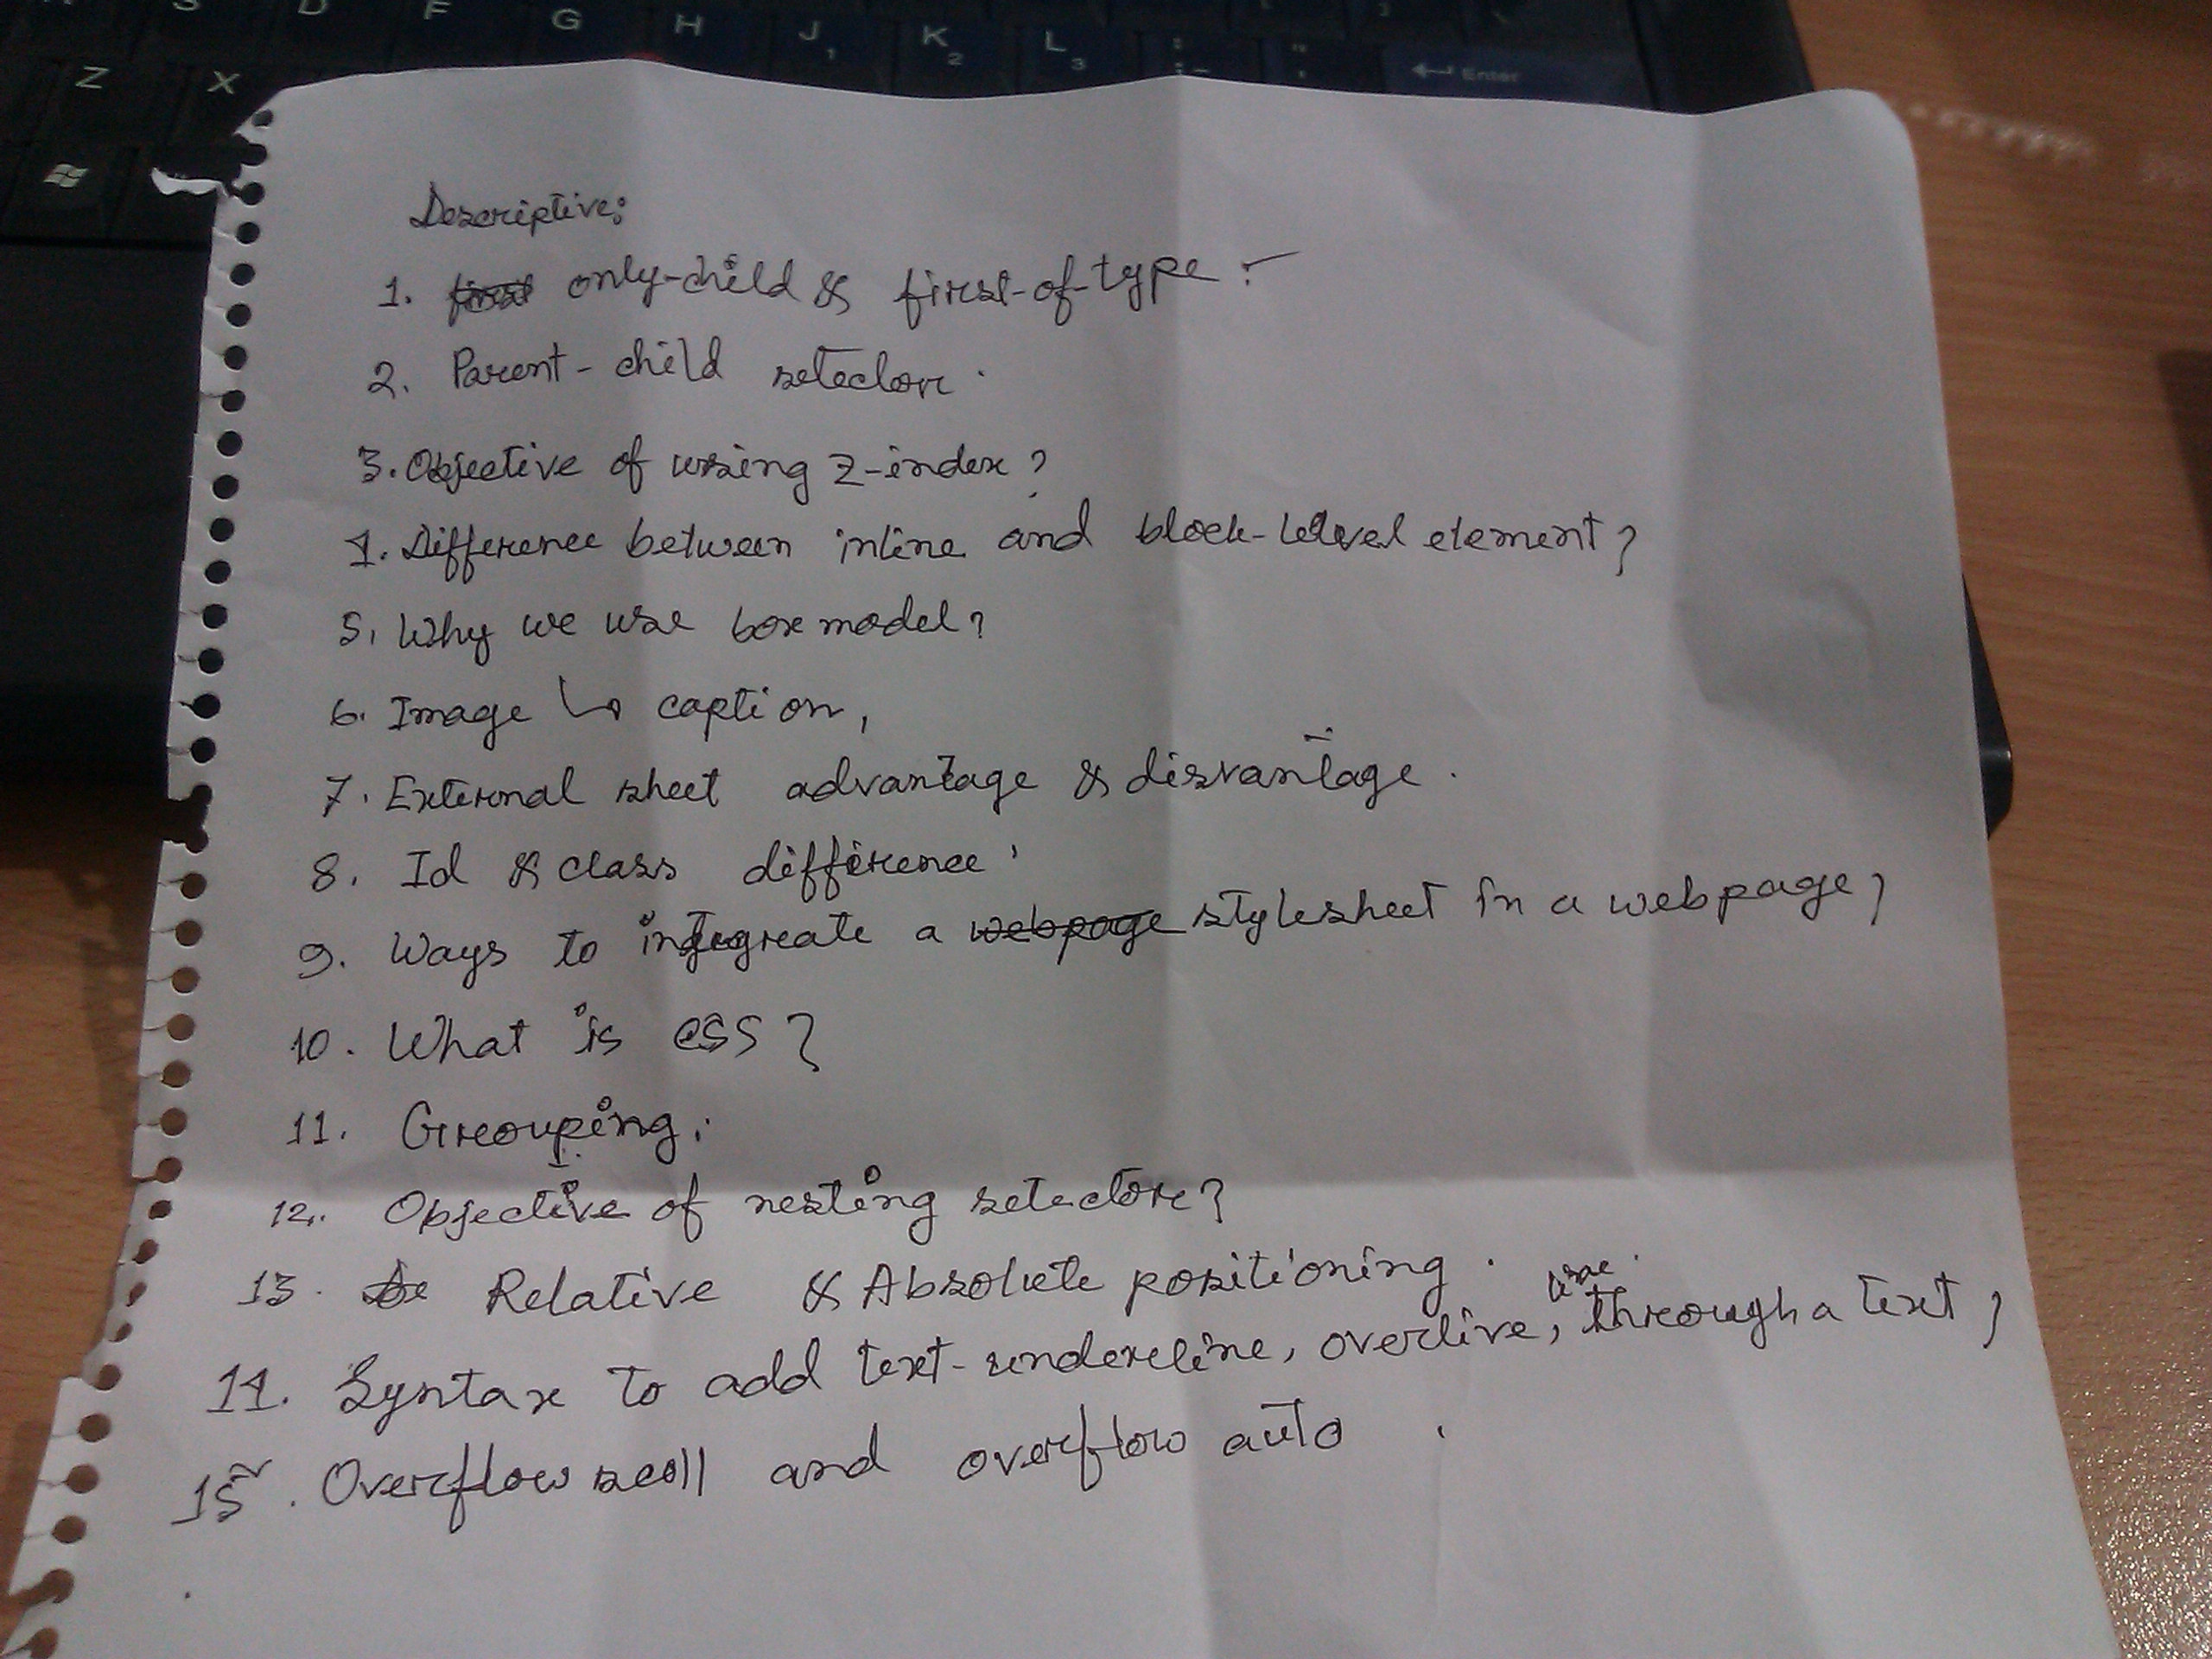 S D F G H J 1 K 2 L 3 : ; " '
Z X Enter
Descriptive:
1. first only-child & first-of-type :-
2. Parent-child selector.
3. Objective of using z-index?
4. Difference between inline and block-level element?
5. Why we use box model?
6. Image ↳ caption,
7. External sheet advantage & disvantage.
8. Id & class difference
9. Ways to integreate a webpage stylesheet in a webpage?
10. What is CSS?
11. Grouping.
12. Objective of nesting selector?
13. Relative & Absolute positioning.
14. Syntax to add text-underline, overlive, line through a text?
15. Overflow scoll and overflow auto